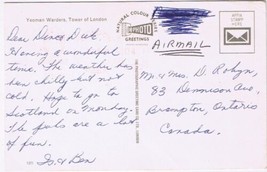 Yeoman Warders, Tower of London
NATURAL COLOUR
PHOTO
GREETINGS
AFFIX
STAMP
HERE
AIRMAIL
Dear Dene & Dick
Having a wonderful
time. The weather has
been chilly but not
cold. Hope to go to
Scotland on Monday.
The pubs are a lot
of fun.
& Ben
Mr & Mrs. D. Robyn,
83 Dennison Ave.
Brampton, Ontario
Canada.